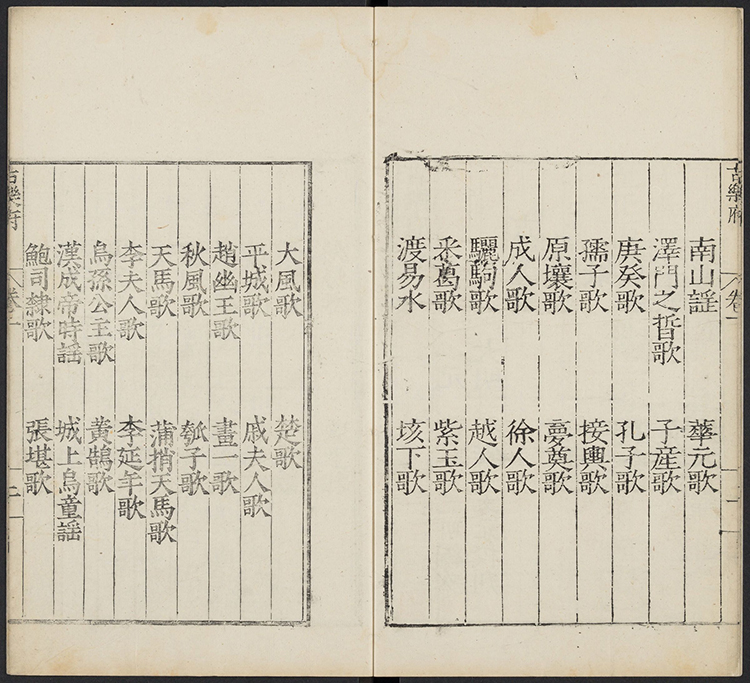 古樂府 卷一
南山謡 華元歌
澤門之晳歌 子産歌
庚癸歌 孔子歌
孺子歌 接輿歌
原壤歌 夢奠歌
成人歌 徐人歌
驪駒歌 越人歌
釆葛歌 紫玉歌
渡易水 垓下歌
大風歌 楚歌
平城歌 戚夫人歌
趙幽王歌 畫一歌
秋風歌 瓠子歌
天馬歌 蒲捎天馬歌
李夫人歌 李延年歌
烏孫公主歌 黄鵠歌
漢成帝時謡 城上烏童謡
鮑司隸歌 張堪歌
古樂府 卷一